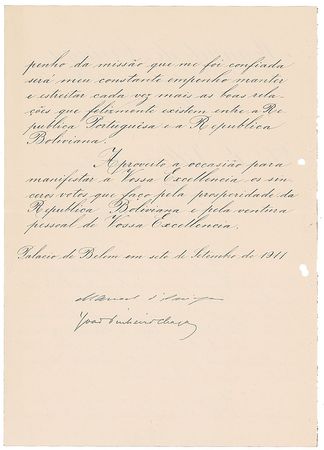 penho da missão que me foi confiada
será meu constante empenho manter
e estreitar cada vez mais as boas rela-
ções que felizmente existem entre a Re
publica Portuguesa e a Republica
Boliviana.
Aproveito a occasião para
manifestar a Vossa Excellencia os sin
ceros votos que faço pela prosperidade da
Republica Boliviana e pela ventura
pessoal de Vossa Excellencia.
Palacio de Belem em sete de Setembro de 1911
Manuel d'Arriaga
João Pinheiro Chagas